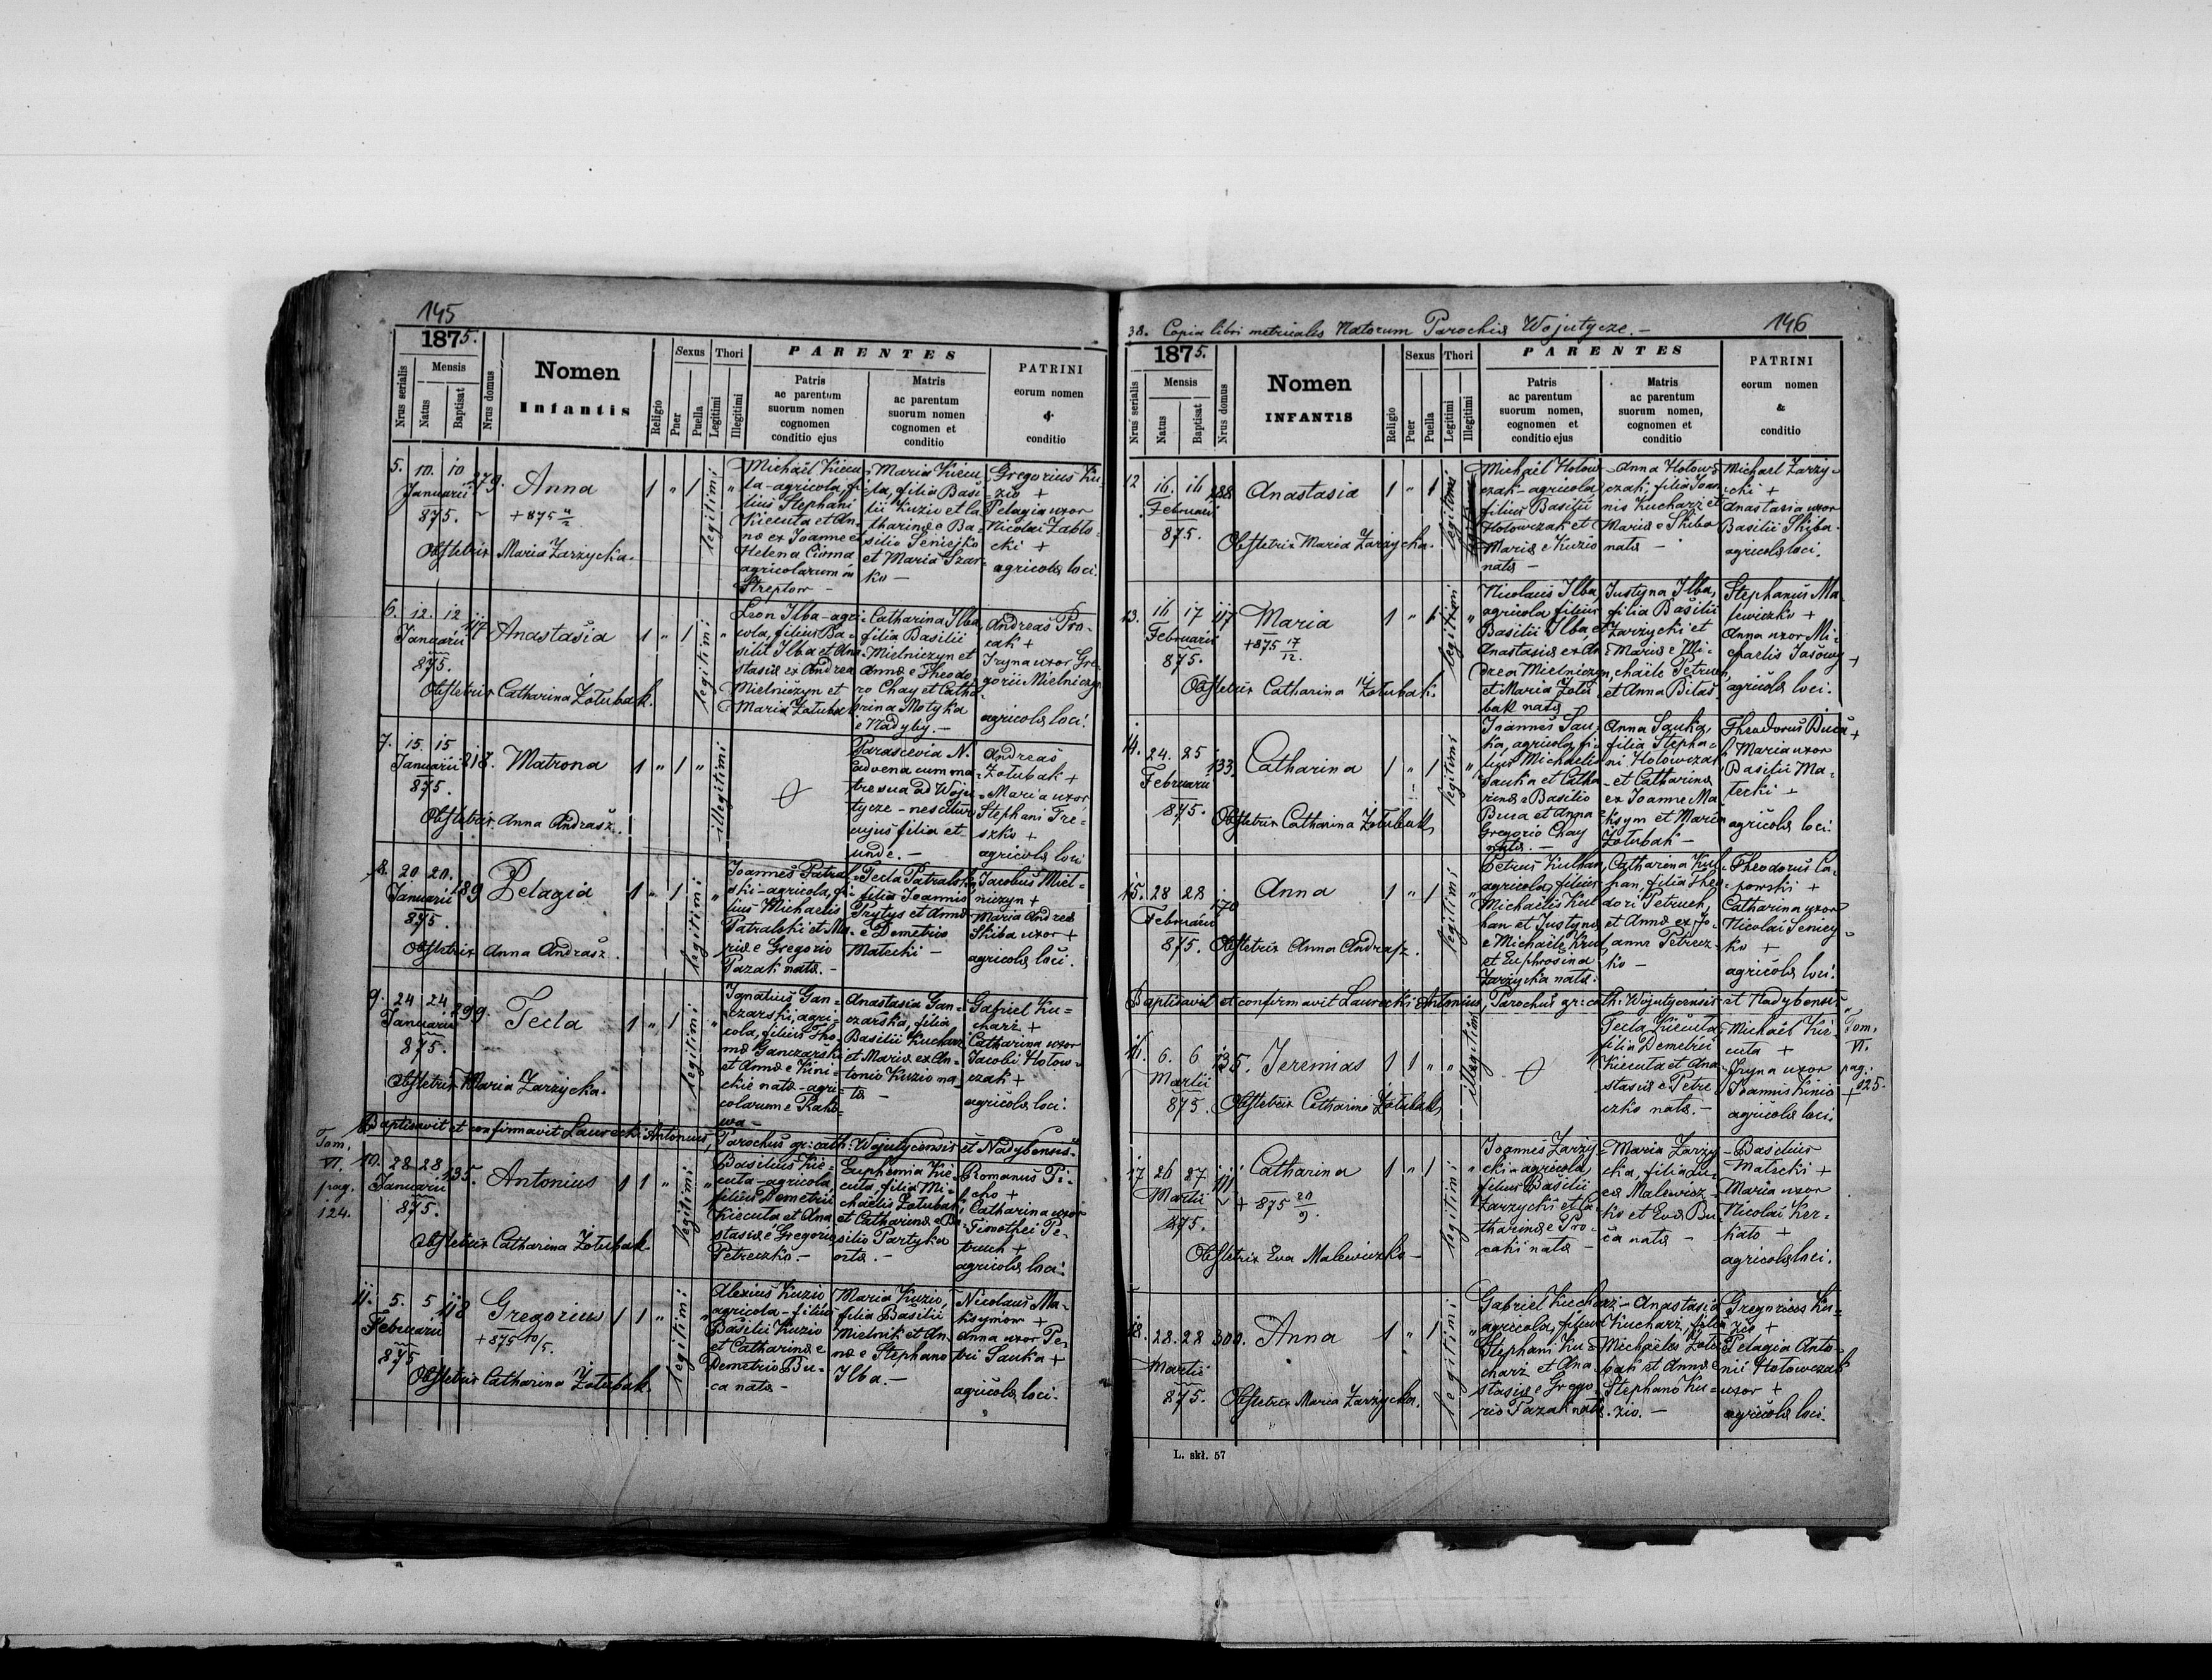 145
1875.
Nrus serialis
Mensis
Natus
Baptisat
Nrus domus
Nomen
Infantis
Religio
Sexus
Puer
Puella
Thori
Legitimi
Illegitimi
PARENTES
Patris
ac parentum
suorum nomen
cognomen
conditio ejus
Matris
ac parentum
suorum nomen
cognomen et
conditio
PATRINI
eorum nomen
&
conditio
5. 10. 10 279. Anna 1 " 1 legitimi "
Januarii
875.
+ 875
Obstetrix Maria Zarzycka.
Michaël Kiecu-
ta-agricola, fi-
lius Stephani
Kiecuta et An-
næ ex Joanne et
Helena Ciuma
agricolarum in
Streptow -
Maria Kiecu-
ta, filia Basi-
lii Kuzio et Ca-
tharinæ e Ba-
silio Seniejko
et Maria Szar-
ko -
Gregorius Ku-
zio +
Pelagia uxor
Nicolai Zabło-
cki +
agricolæ loci.
6. 12. 12 117 Anastasia 1 " 1 legitimi "
Januarii
875.
Obstetrix Catharina Żołubak.
Leon Ilba-agri-
cola, filius Ba-
silii Ilba et Ana-
stasiæ ex Andrea
Mielniczyn et
Maria Żołubak
Catharina Ilba,
filia Basilii
Mielniczyn et
Annæ e Theodo-
ro Chay et Catha-
rina Motyka
e Nadyby. -
Andreas Pro-
cak +
Iryna uxor Gre-
gorii Mielniczyn
agricolæ loci.
7. 15. 15 218. Matrona 1 " 1 " illegitimi
Januarii
875.
Obstetrix Anna Andrasz.
Parascevia N.
advena cum ma-
tre sua ad Woju-
tycze - nescitur
cujus filia et
unde. -
Andreas
Żołubak +
Maria uxor
Stephani Tre-
szko +
agricolæ loci
8. 20 20. 189 Pelagia 1 " 1 legitimi "
Januarii
875.
Obstetrix Anna Andrasz.
Joannes Patral-
ski-agricola, fi-
lius Michaelis
Patralski et Ma-
riæ e Gregorio
Pazak natæ. -
Tecla Patralska
filia Joannis
Prytys et Annæ
e Demetrio
Matecki -
Jacobus Miel-
niczyn +
Maria Andreæ
Skiba uxor +
agricolæ loci.
9. 24 24 299. Tecla 1 " 1 legitimi "
Januarii
875.
Obstetrix Maria Zarzycka.
Ignatius Gan-
czarski, agri-
cola, filius Tho-
mæ Ganczarski
et Annæ e Kini-
ckie natæ - agri-
colarum e Rako-
wa -
Anastasia Gan-
czarska, filia
Basilii Kucharz
et Mariæ ex An-
tonio Kuzio na-
tæ -
Gabriel Ku-
charz +
Catharina uxor
Jacobi Hołow-
czak +
agricolæ loci.
Baptisavit et confirmavit Laurecki Antonius, Parochus gr: cath: Wojutycensis et Nadybensis.
Tom.
VI.
pag.
124.
10. 28 28 135. Antonius 1 1 " legitimi "
Januarii
875.
Obstetrix Catharina Żołubak
Basilius Kie-
cuta-agricola
filius Demetrii
Kiecuta et Ana-
stasiæ e Gregorio
Petreczko. -
Euphemia Kie-
cuta, filia Mi-
chaëlis Żołubak
et Catharinæ e Ba-
silio Partyka
ortæ. -
Romanus Pi-
cho +
Catharina uxor
Timothei Pe-
truch +
agricolæ loci.
11. 5. 5 118 Gregorius 1 1 " legitimi "
Februarii
875
+ 875 10/5.
Obstetrix Catharina Żołubak.
Alexius Kuzio
agricola - filius
Basilii Kuzio
et Catharinæ e
Demetrio Bu-
ca natæ -
Maria Kuzio,
filia Basilii
Mielnik et An-
næ e Stephano
Ilba. -
Nicolaus Ma-
ksymow +
Anna uxor Pe-
tri Sauka +
agricolæ loci.
38. Copia libri metricalis Natorum Parochiæ Wojutycze. -
146
1875.
Nrus serialis
Mensis
Natus
Baptisat
Nrus domus
Nomen
INFANTIS
Religio
Sexus
Puer
Puella
Thori
Legitimi
Illegitimi
PARENTES
Patris
ac parentum
suorum nomen,
cognomen et
conditio ejus
Matris
ac parentum
suorum nomen,
cognomen et
conditio
PATRINI
eorum nomen
&
conditio
12 16. 16 288 Anastasia 1 " 1 legitimi
Februarii
875.
Obstetrix Maria Zarzycka.
Michaël Hołow-
czak-agricola
filius Basilii
Hołowczak et
Mariæ e Kuzio
natæ -
Anna Hołow-
czak, filia Joan-
nis Kucharz et
Mariæ e Skiba
natæ -
Michael Zarzy-
cki +
Anastasia uxor
Basilii Skiba
agricolæ loci.
13. 16 17 117 Maria 1 " 1 legitimi "
Februarii
875.
+ 875 17/12.
Obstetrix Catharina Żołubak.
Nicolaus Ilba,
agricola, filius
Basilii Ilba, et
Anastasiæ ex An-
drea Mielniczyn
et Maria Żołu-
bak natæ
Justyna Ilba,
filia Basilii
Zarzycki et
Mariæ e Mi-
chaële Petruch,
et Anna Bilas
Stephanus Ma-
lewiczko +
Anna uxor Mi-
chaelis Jasowy +
agricolæ loci.
14. 24. 25 133. Catharina 1 " 1 legitimi "
Februarii
875.
Obstetrix Catharina Żołubak
Joannes Sau-
ka, agricola, fi-
lius Michaelis
Sauka et Catha-
rinæ e Basilio
Buca et Anna
Gregorio Chay
natæ. -
Anna Sauka,
filia Stepha-
ni Hołowczak
et Catharinæ
ex Joanne Ma-
ksym et Maria
Żołubak -
Theodorus Buca +
Maria uxor
Basilii Ma-
tecki +
agricolæ loci.
15. 28 28 170 Anna 1 " 1 legitimi "
Februarii
875.
Obstetrix Anna Andrasz.
Petrus Kulhan,
agricola, filius
Michaelis Kul-
han et Justynæ
e Michaële Kruk
et Euphrosina
Zarzycka natæ.
Catharina Kul-
han, filia Theo-
dori Petruch,
et Annæ ex Jo-
anne Petrecz-
ko -
Theodorus Ca-
powski +
Catharina uxor
NicolaiSeniey-
ko +
agricolæ loci.
Baptisavit et confirmavit Laurecki Antonius, Parochus gr: cath: Wojutycensis et Nadybensis
16. 6. 6 135. Jeremias 1 1 " " illegitimi
Martii
875.
Obstetrix Catharina Żołubak
Tecla Kiecuta
filia Demetrii
Kiecuta et Ana-
stasiæ e Petre-
czko natæ. -
Michaël Kie-
cuta +
Iryna uxor
Joannis Kinio +
agricolæ loci.
Tom.
VI.
pag.
125.
17 26 27 111 Catharina 1 " 1 legitimi "
Martii
875.
+ 875 20/9.
Obstetrix Eva Malewiczko -
Joannes Zarzy-
cki-agricola,
filius Basilii
Zarzycki et Ca-
tharinæ e Pro-
caki natæ -
Maria Zarzy-
cka, filia Lu-
cæ Malewicz-
ko et Evæ Bu-
ca natæ -
Basilius
Matecki +
Maria uxor
Nicolai Ker-
kało +
agricolæ loci.
18. 28. 28 300. Anna 1 " 1 legitimi "
Martii
875.
Obstetrix Maria Zarzycka.
Gabriel Kucharz-
agricola, filius
Stephani Ku-
charz et Ana-
stasiæ e Grego-
rio Pazak natæ.
Anastasia
Kucharz, filia
Michaëlis Żołu-
bak et Annæ e
Stephano Ku-
zio. -
Gregorius Ku-
zio +
Pelagia Anto-
nii Hołowczak
uxor +
agricolæ loci.
L. skł. 57